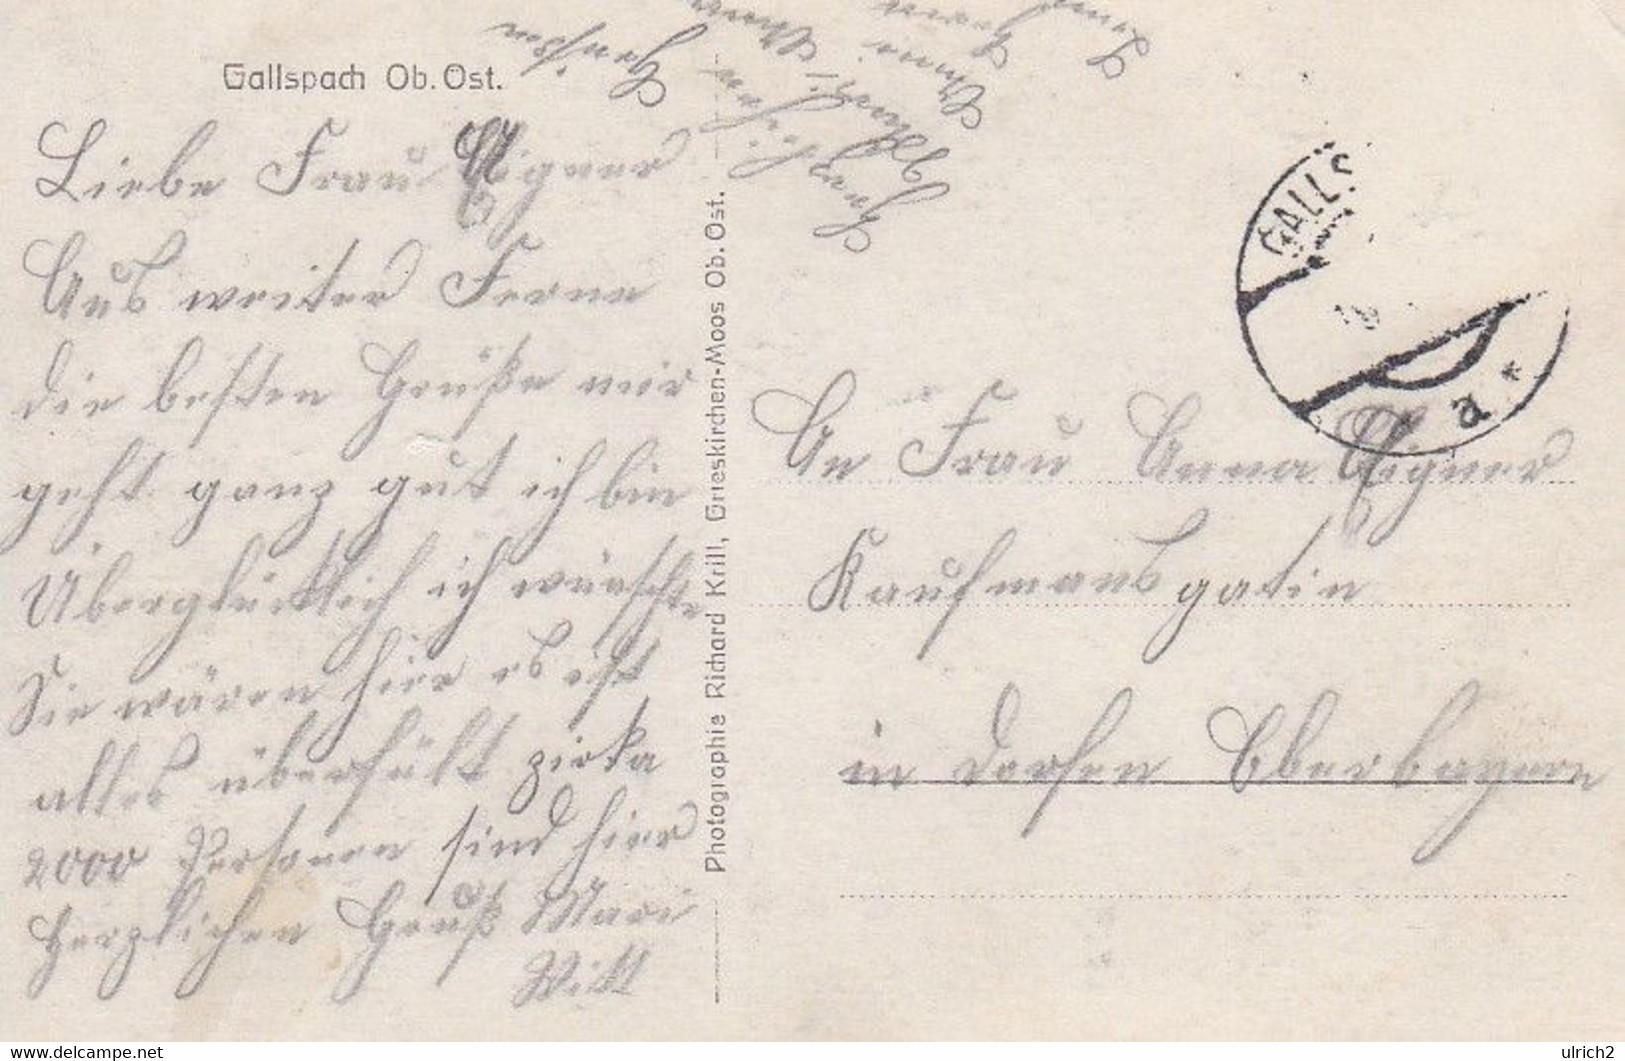 Gallspach Ob. Ost.
Liebe Frau Eigner
Aus weiter Ferne
die besten Grüße mir
geht ganz gut ich bin
Überglücklich ich wünschte
Sie wären hier es ist
alles überfült zirka
2000 Personen sind hier
Herzlichen Gruß Mari
Witt
Photographie Richard Krill, Grieskirchen-Moos Ob. Ost.
GALLS
a *
An Frau Anna Eigner
Kaufmansgatin
in Dorfen Oberbayern
delcampe.net
ulrich2